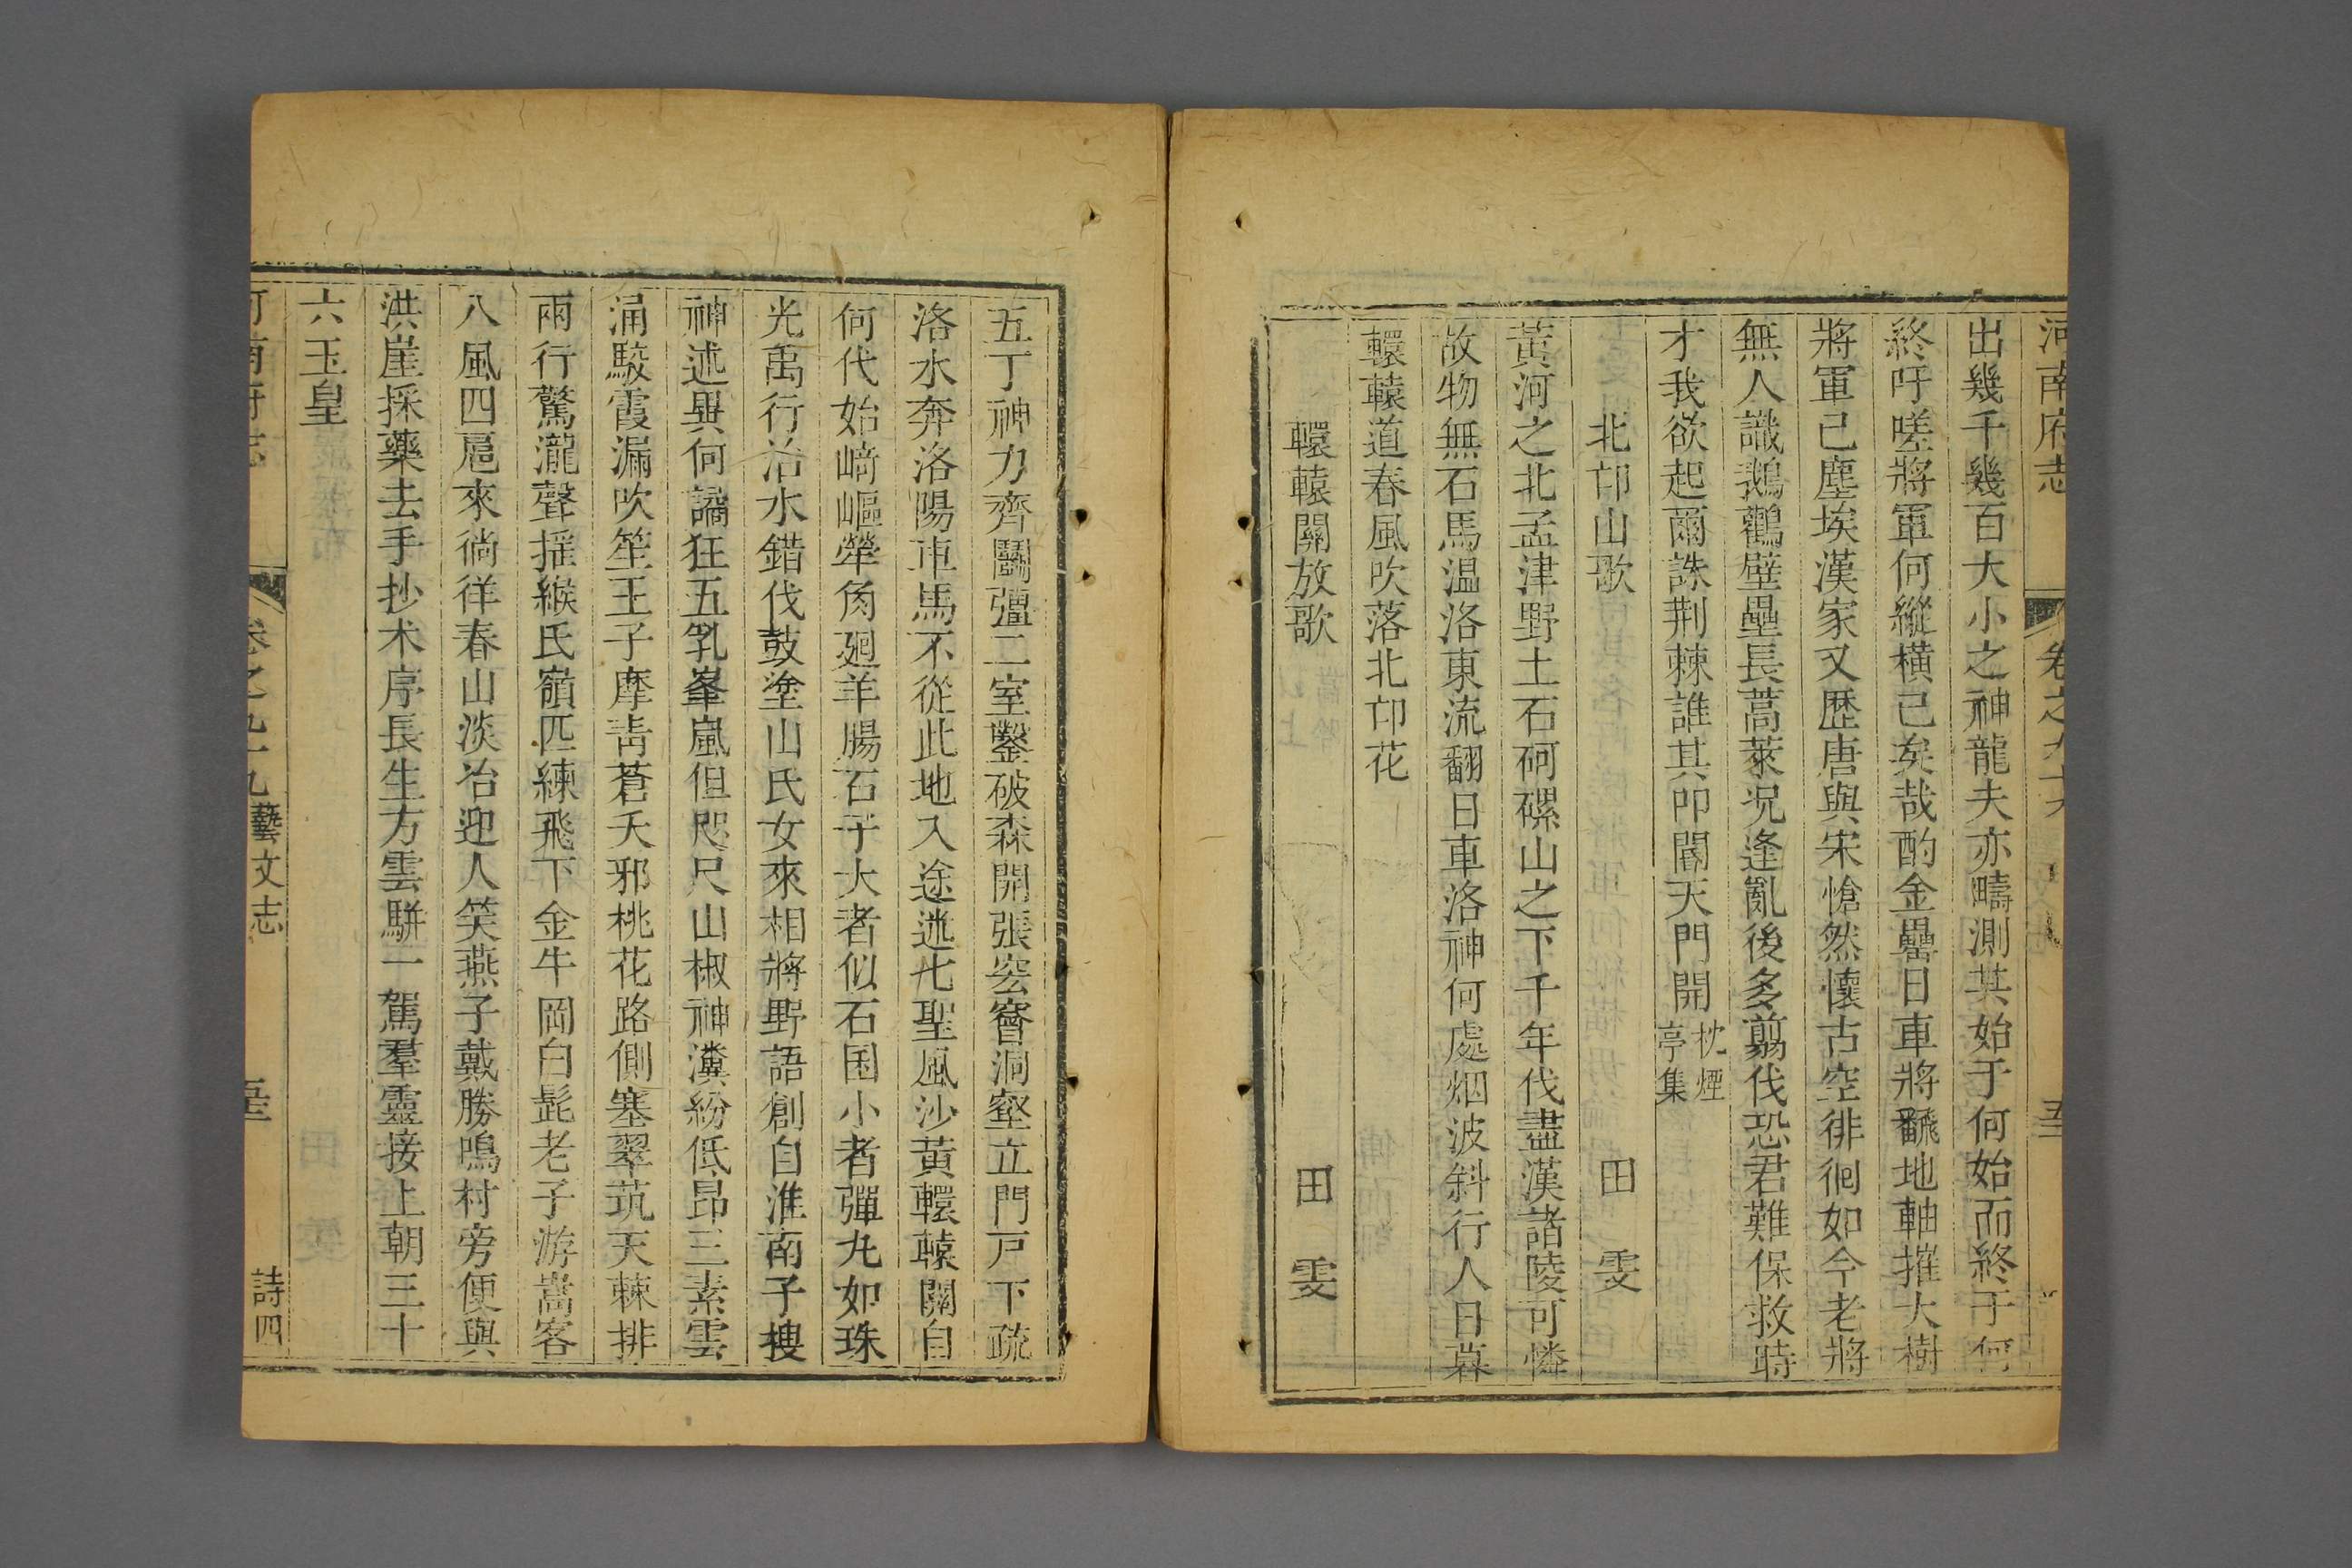 河南府志
卷之九十九
出幾千幾百大小之神龍夫亦疇測其始于何始而終于何
終吁嗟將軍何縱橫已矣哉酌金罍日車將飜地軸摧大樹
將軍已塵埃漢家又歷唐與宋愴然懷古空徘徊如今老將
無人識鵝鸛壁壘長蒿萊况逢亂後多翦伐恐君難保救時
才我欲起爾誅荆棘誰其叩閽天門開枕煙亭集
北邙山歌 田雯
黃河之北孟津野土石砢磥山之下千年代盡漢諸陵可憐
故物無石馬温洛東流翻日車洛神何處烟波斜行人日暮
轘轅道春風吹落北邙花
轘轅關放歌 田雯
五丁神力齊鬬彊二室鑿破森開張窔窨洞壑立門戸下疏
洛水奔洛陽車馬不從此地入途迷七聖風沙黃轘轅關自
何代始﨑嶇犖角廻羊腸石子大者似石囷小者彈丸如珠
光禹行治水錯伐鼓塗山氏女來相將野語創自淮南子搜
神述異何譎狂五乳峯嵐但咫尺山椒神瀵紛低昻三素雲
涌駿霞漏吹笙王子摩青蒼夭邪桃花路側塞翠筑天棘排
兩行驚瀧聲摇緱氏嶺匹練飛下金牛岡白髭老子游嵩客
八風四扈來徜徉春山淡冶迎人笑燕子戴勝鳴村旁便與
洪崖採藥去手抄术序長生方雲駢一駕羣靈接上朝三十
六玉皇
河南府志
卷之九十九
藝文志
詩四